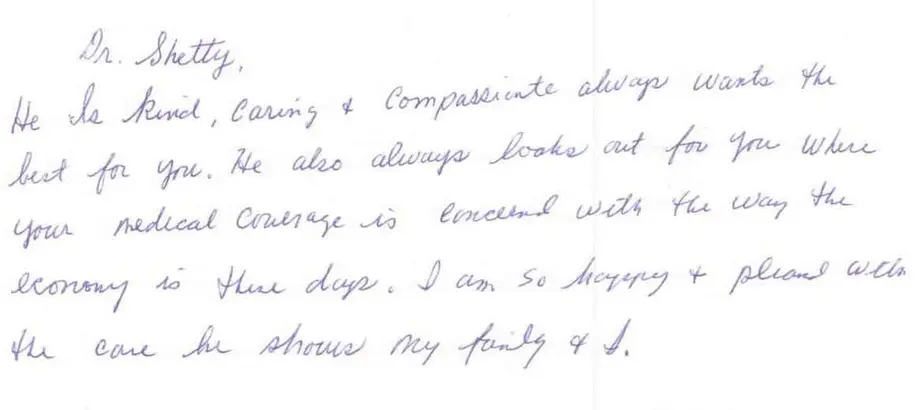 Dr. Shetty,
He Is kind, caring & compassiinte always wants the
best for you. He also always looks out for you where
your medical coverage is concernd with the way the
economy is these days. I am so happy & pleasd with
the care he shows my family & I.